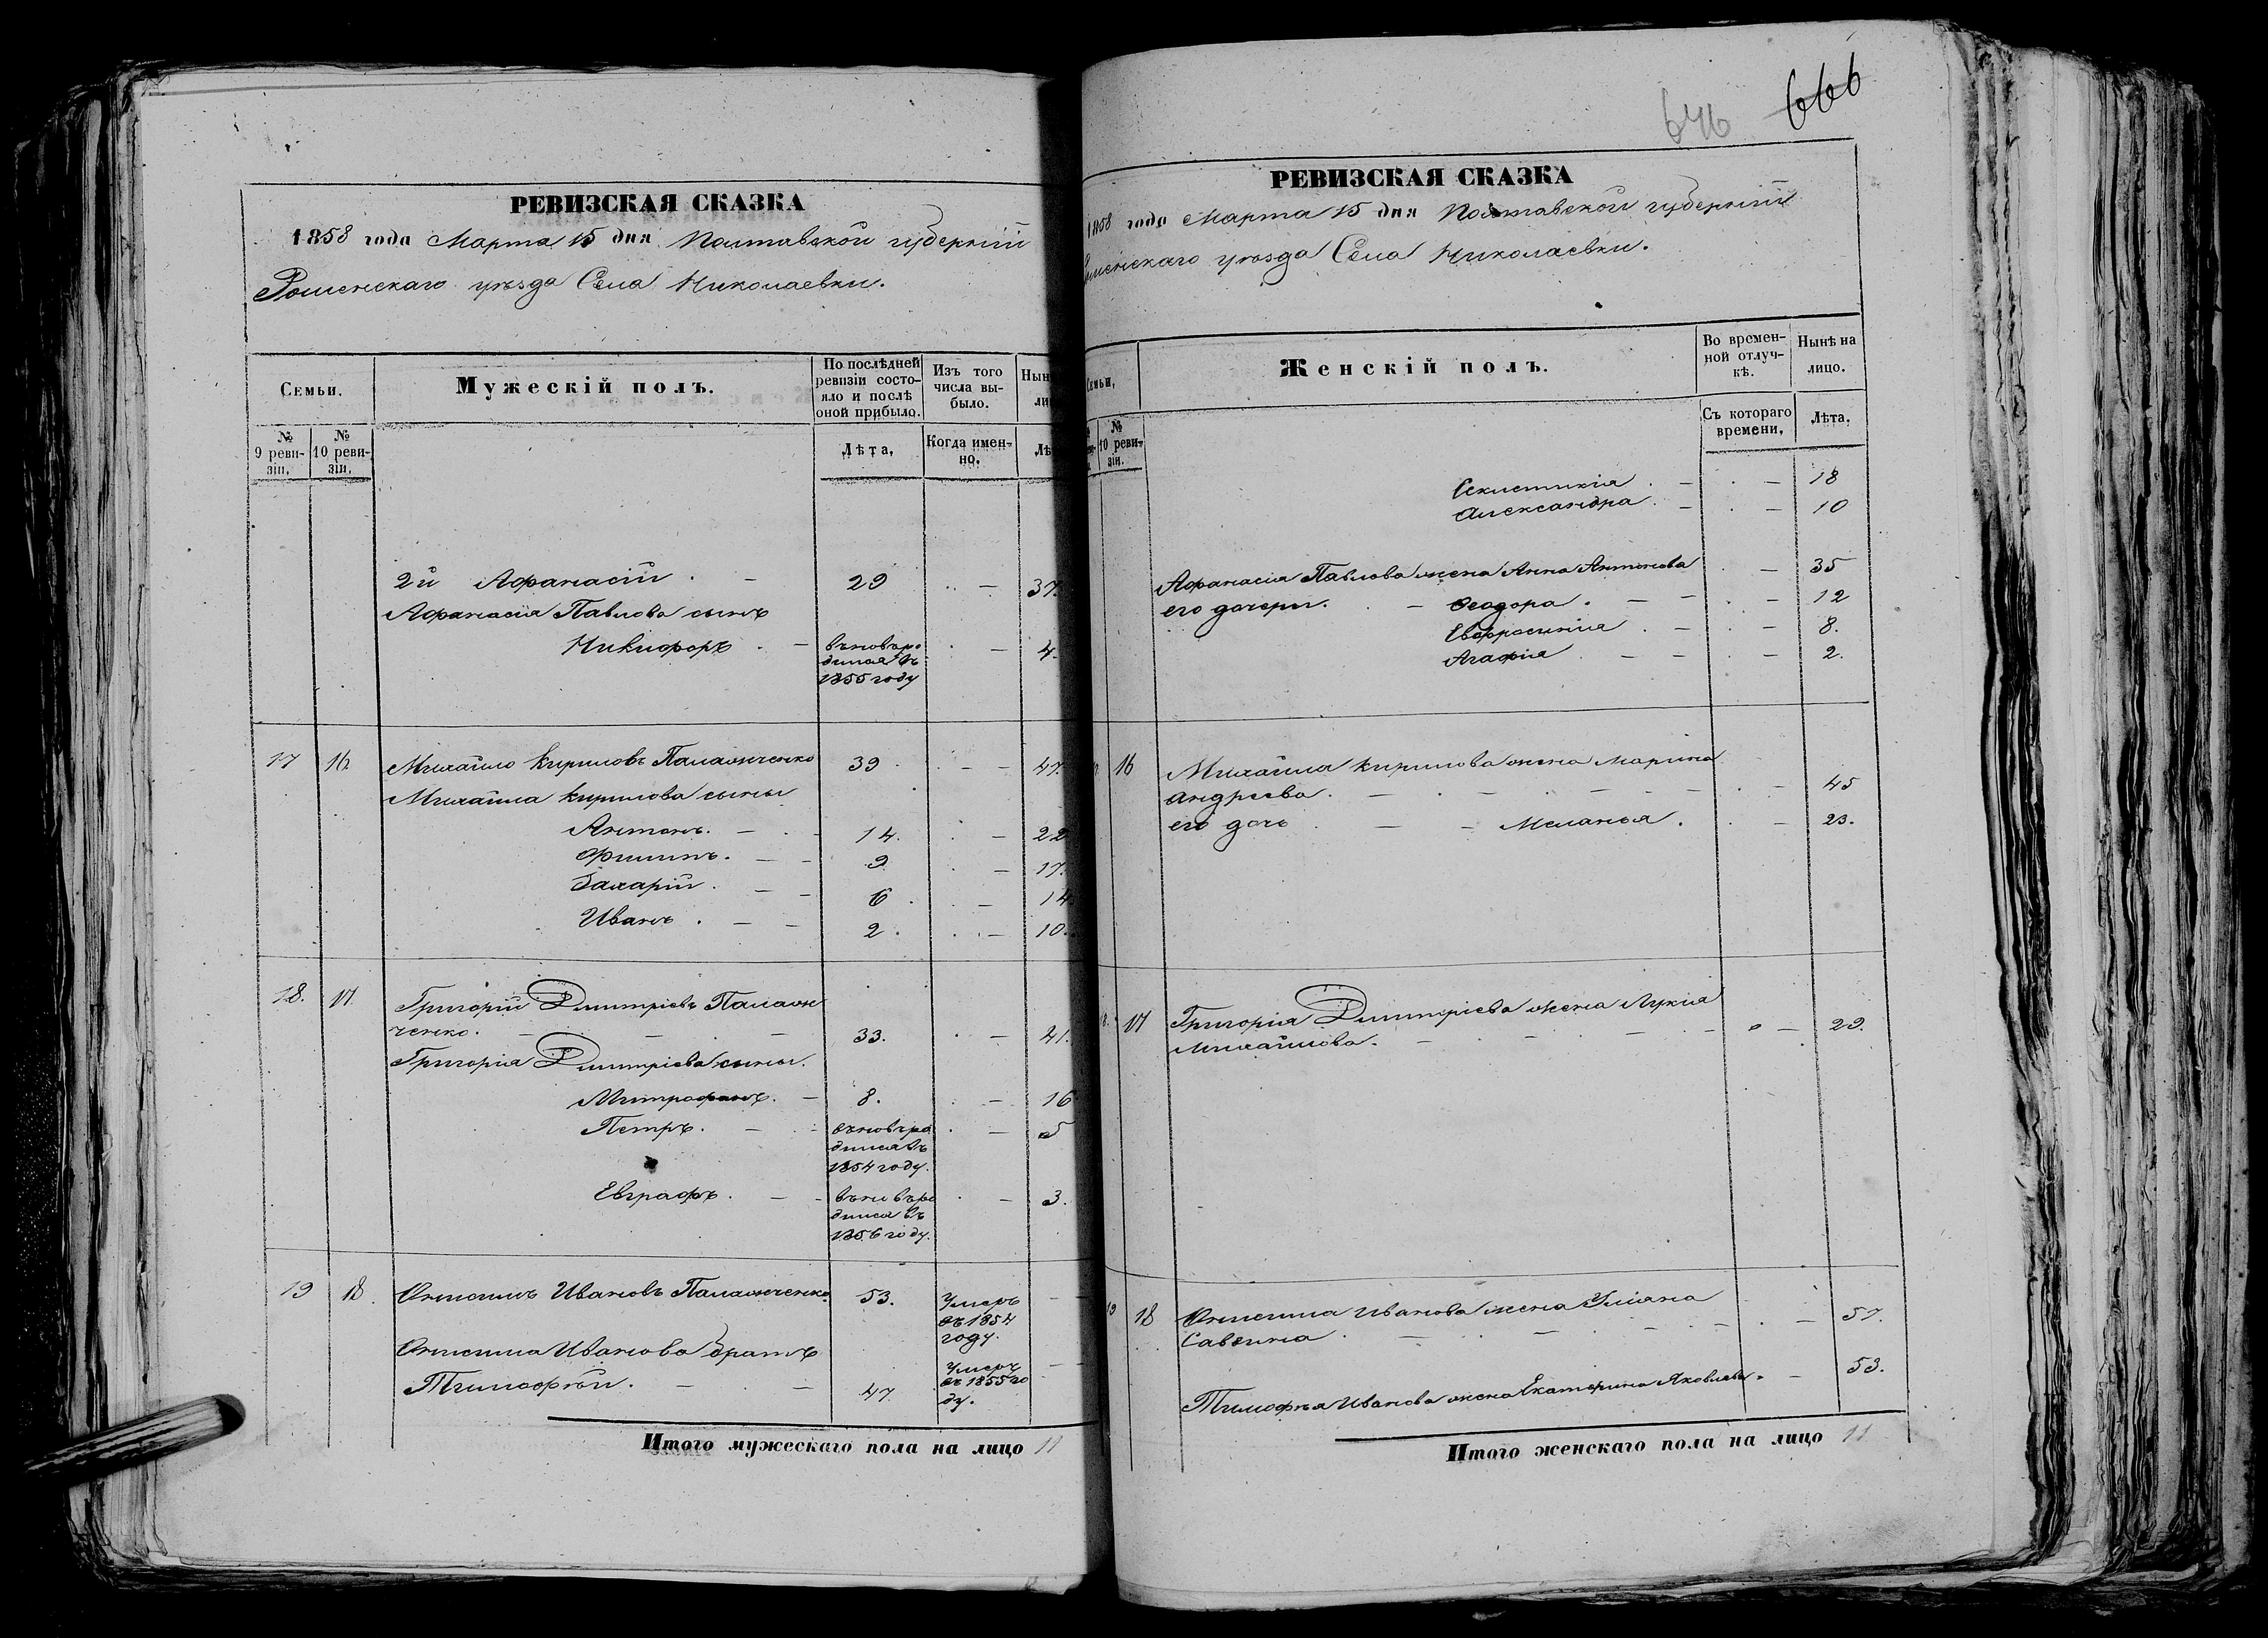 РЕВИЗСКАЯ СКАЗКА
1858 года Марта 15 дня Полтавской губерніи
Роменскаго уѣзда Села Николаевки.
Семьи.
Мужескій полъ.
По послѣдней ревизіи состояло и послѣ оной прибыло.
Изъ того числа выбыло.
№ 9 ревизіи.
№ 10 ревизіи.
Лѣта.
Когда именно.
2й Аѳанасій . — 29 — 37.
Аѳанасія Павлова сынъ
Никифоръ . — вновь ро- — 4.
дился въ
1855 году
17 16 Михайло Кириловъ Паламженко 39 — 47.
Михайла Кирилова сыны
Антонъ. — 14. — 22
Филипъ. — 9 — 17.
Захарій. — 6 — 14
Иванъ . — 2. — 10.
18. 17. Григорій Димитріевъ Паламж
ченко. — 33. — 41.
Григорія Димитріева сыны.
Митрофанъ. — 8. — 16
Петръ. — вновь ро — 5
дился въ
1854 году.
Евграфъ. — вновь ро — 3.
дился въ
1856 году.
19 18. Онисимъ Ивановъ 53. Умеръ —
въ 1854
году.
Онисима Иванова братъ Умеръ —
Тимофѣй. — 47. въ 1855 го
ду.
Итого мужескаго пола на лицо 11
646 666
РЕВИЗСКАЯ СКАЗКА
1858 года Марта 15 дня Полтавской губерніи
уѣзда Села Николаевки.
Женскій полъ.
Во временной отлучкѣ.
Нынѣ на лицо.
№ 10 ревизіи.
Съ котораго времени.
Лѣта.
— 18
Александра. — 10
Аѳанасія Павлова жена Анна Антонова — 35
его дочери. — Ѳеодора. — 12
Евфросинія . — 8.
Агафія — 2.
16 Михайла Кирилова жена Марина
Андреева. — 45
его дочь — Меланья. — 23.
17 Григорія Димитріева жена Лукія
Михайлова. — 29.
19 18 Онисима Иванова жена Уліана
Саввина. — 57.
Тимофѣя Иванова жена Екатерина Яковлева — 53.
Итого женскаго пола на лицо 11